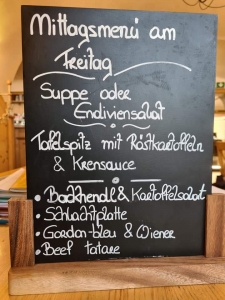 Mittagsmenü am
Freitag
Suppe oder
Endiviensalat
Tafelspitz mit Röstkartoffeln
& Krensauce
• Backhendl & Kartoffelsalat
• Schlachtplatte
• Gordan-bleu & Wiener
• Beef tatare